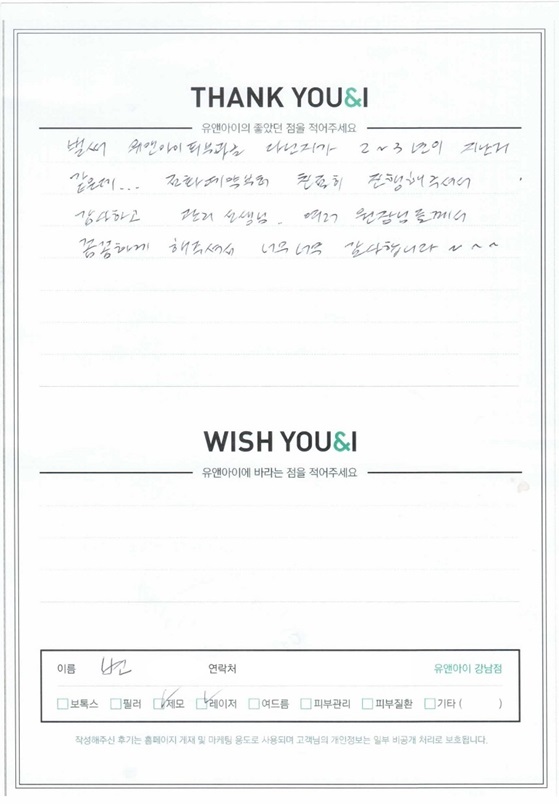 THANK YOU&I
유앤아이의 좋았던 점을 적어주세요
벌써 유앤아이피부과를 다닌지가 2~3년이 지난거
같은데... 전화예약부터 친절히 진행해주셔서
감사하고 관리 선생님. 여러 원장님들께서
꼼꼼하게 해주셔서 너무너무 감사합니다 ~ ~ ~
WISH YOU&I
유앤아이에 바라는 점을 적어주세요
이름 연락처 유앤아이 강남점
보톡스 필러 제모 레이저 여드름 피부관리 피부질환 기타 ( )
작성해주신 후기는 홈페이지 개재 및 마케팅 용도로 사용되며 고객님의 개인정보는 일부 비공개 처리로 보호됩니다.